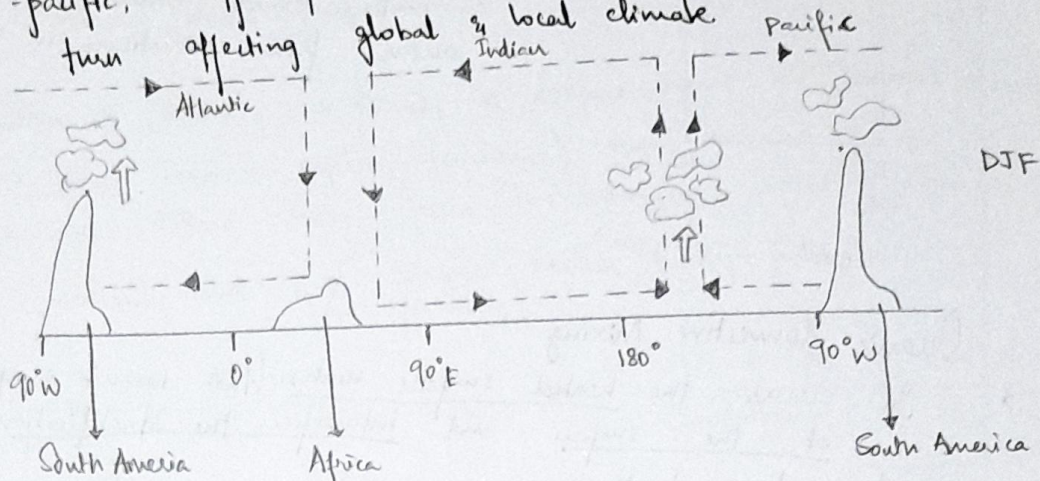 -pacific.
turn affecting global & local climate
Atlantic
Indian
Pacific
DJF
90°W 0° 90°E 180° 90°W
South America Africa South America